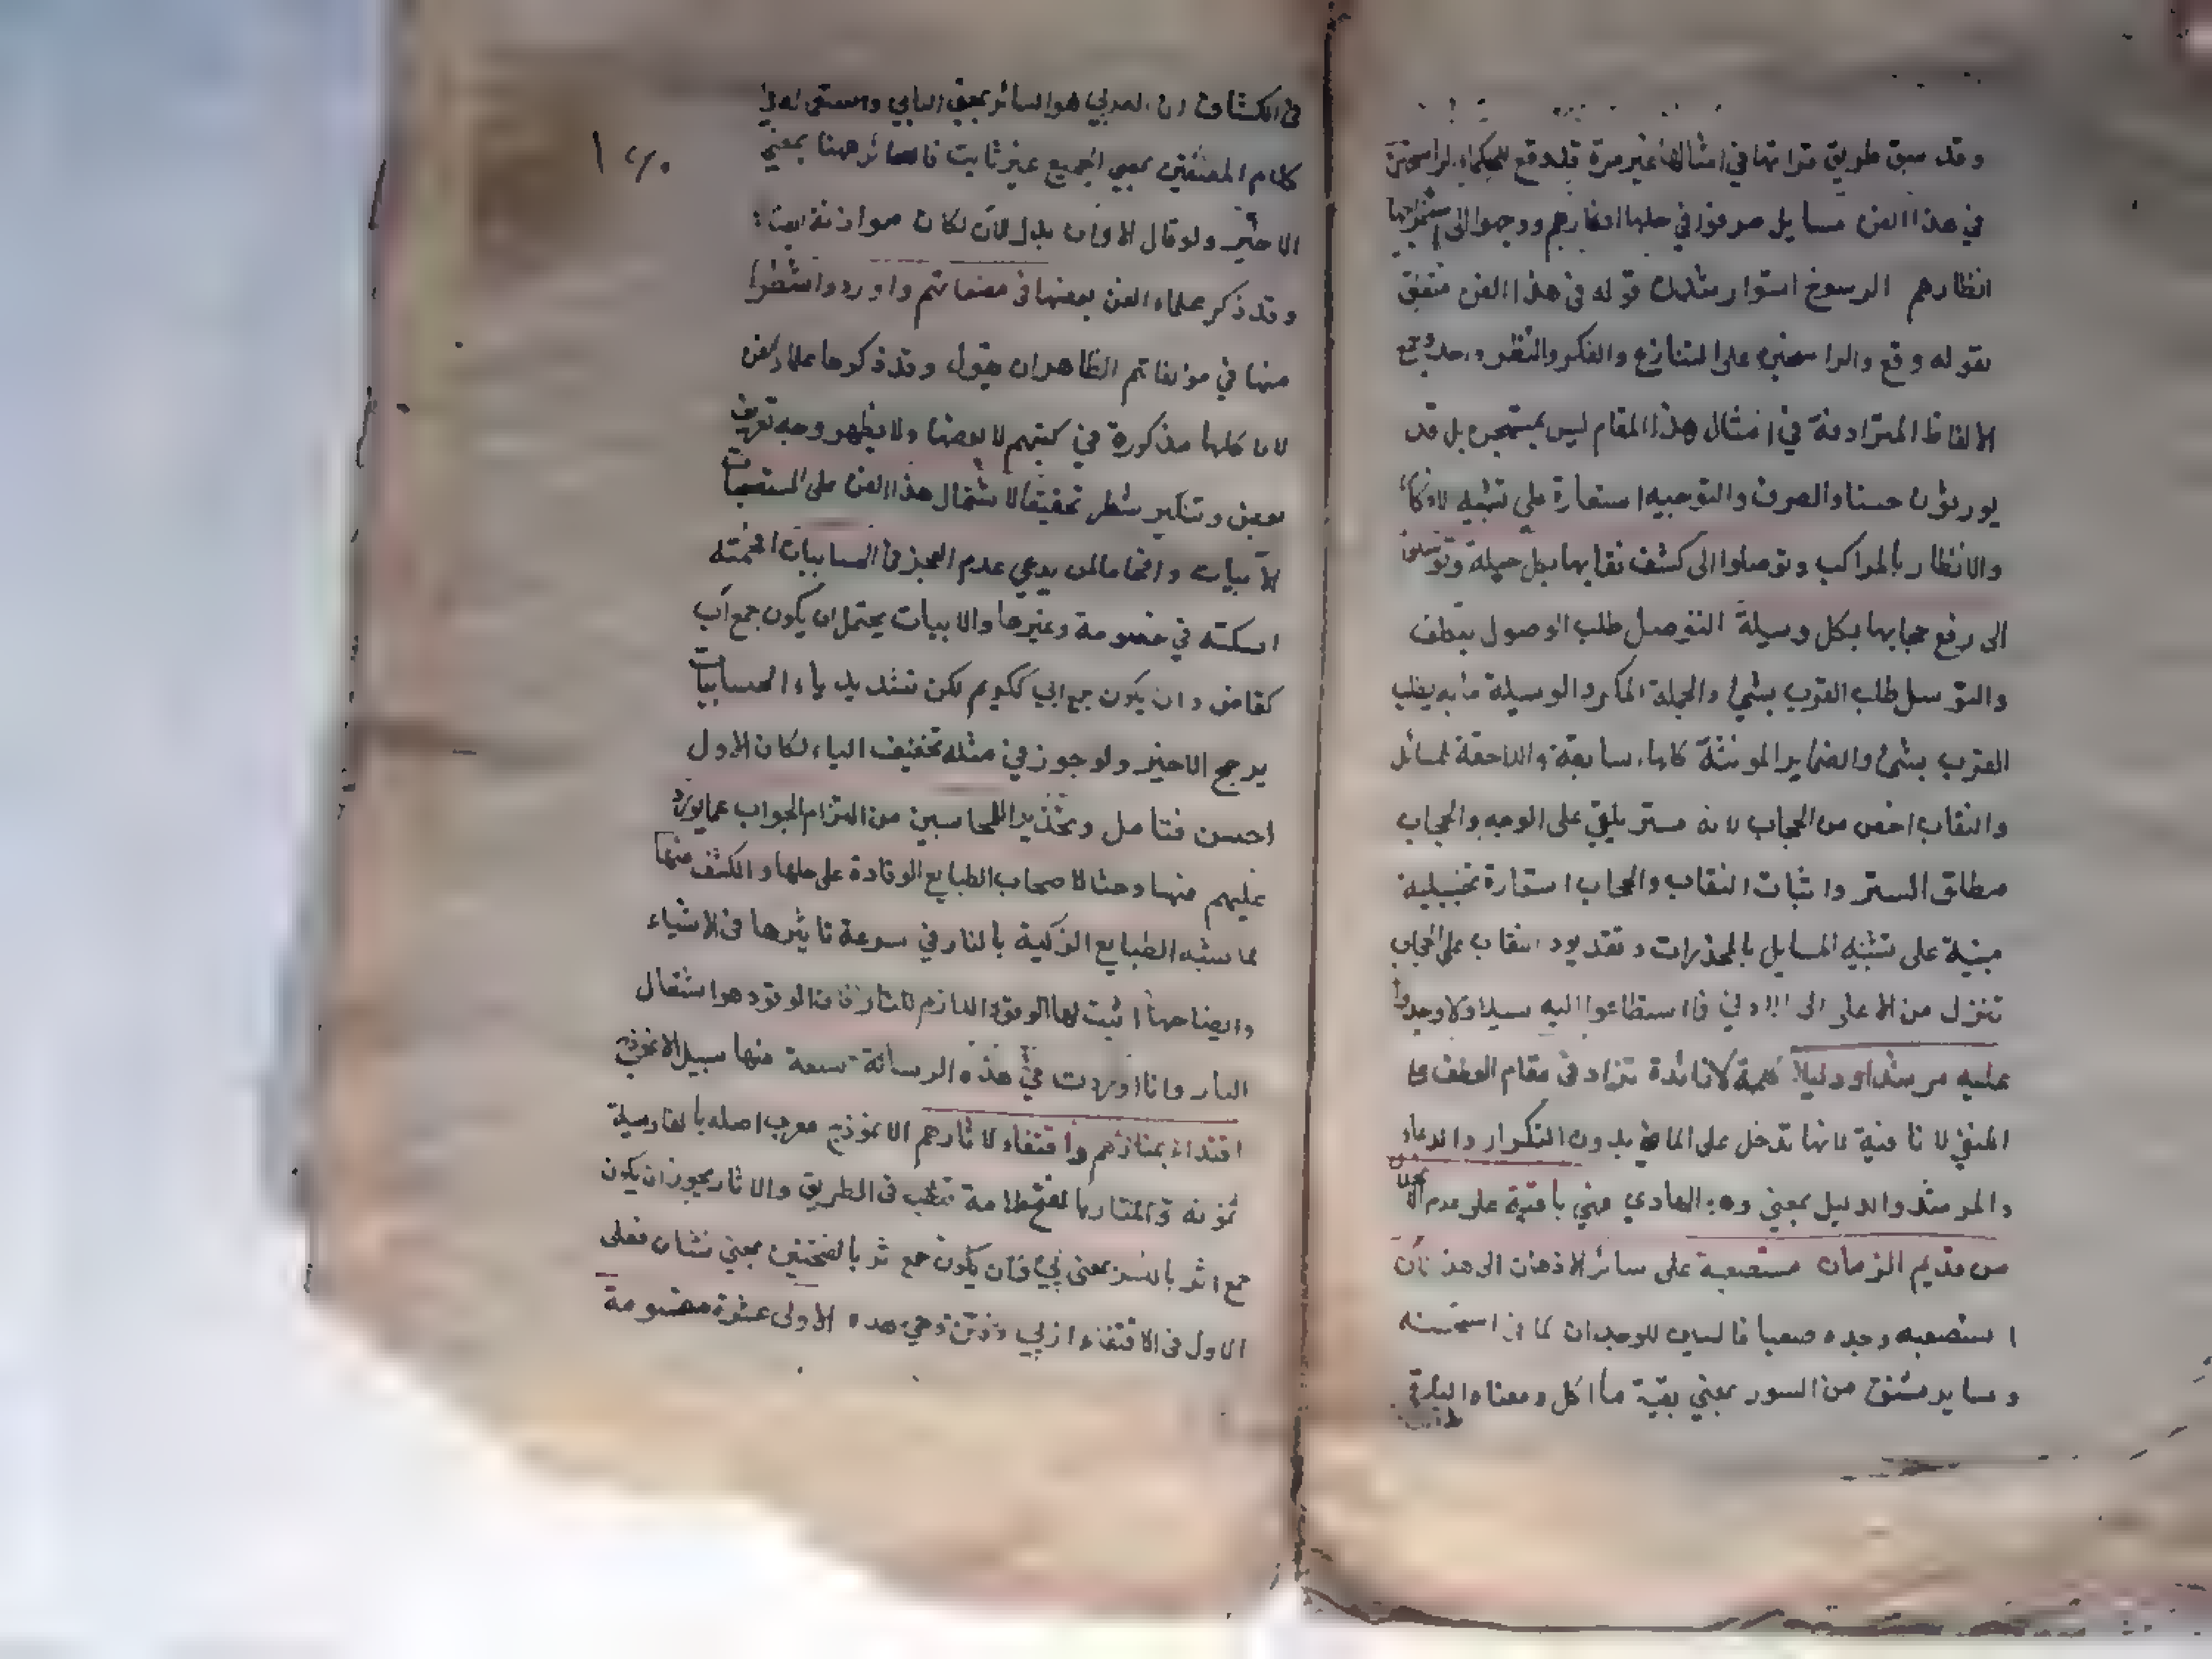 وقد سبق طريق قرائتها في امثالها غير مرة قد وقع للحكماء الراسخين
في هذا الفن مسايل صرفوا في حلها افكارهم ووجهوا الى استخراجها
انظارهم الرسوخ استوار شدن قوله في هذا الفن متعلق
بقوله وقع والراسخين على التنازع والفكر والنظر واحد وجمع
الالفاظ المترادفة في امثال هذا المقام ليس بمستهجن بل قد
يورثون حسنا والصرف والتوجيه استعارة على تشبيه الافكار
والانظار بالمراكب وتوصلوا الى كشف نقابها بكل حيلة وتوسلوا
الى رفع حجابها بكل وسيلة التوصل طلب الوصول بتلطف
والتوسل طلب القرب بشئ والحيلة المكر والوسيلة ما به يطلب
القرب بشئ والضماير المؤنثة كلها سابقة واللاحقة لمسائل
والنقاب اخص من الحجاب لانه ستر يلقى على الوجه والحجاب
مطلق الستر واثبات النقاب والحجاب استعارة تخييلية
مبنية على تشبيه المسايل بالمخدرات وتقديم النقاب على الحجاب
تنزل من الاعلى الى الادنى فما استطاعوا اليه سبيلا ولا وجدوا
عليه مرشدا ودليلا كلمة لا زائدة تزاد في مقام العطف على
المنفي لا نافية لانها تدخل على الماضي بدون التكرار والدعاء
والمرشد والدليل بمعنى وهو الهادي فهي باقية على عدم الانحلال
من قديم الزمان مستصعبة على سائر الاذهان الى هذا الآن
استصعبه وجده صعبا فالسين للوجدان كما في استحسنه
وساير مشتق من السور بمعنى بقية ما اكل ومعناه الباقي
في الكشاف ان العربي هو السائر بمعنى الباقي واستعماله في
كلام المصنفين بمعنى الجميع غير ثابت فالسائر ههنا بمعنى
الاخير ولو قال الاوان بدل الآن لكان موازنة ايضا
وقد ذكر علماء الفن بعضها في مصنفاتهم واوردوا شطرا
منها في مؤلفاتهم الظاهر ان يقول وقد ذكرها علماء الفن
لان كلها مذكورة في كتبهم لا بعضها ولا يظهر وجه تعريف
بعض وتنكير شطر تحقيقا لاشتمال هذا الفن على المستصعبات
الآبيات وافحاما لمن يدعي عدم العجز في الحسابيات افحمته
اسكته في خصومة وغيرها والابيات يحتمل ان يكون جمع آب
كقاض وان يكون جمع ابي ككريم لكن تشديد ياء الحسابيات
يرجح الاخير ولو جوز في مثله تخفيف الياء لكان الاول
احسن فتامل وتحذيرا للمحاسبين من التزام الجواب عما يورد
عليهم منها وحثا لاصحاب الطبايع الوقادة على حلها والكشف عنها
لما شبه الطبايع الزكية بالنار في سرعة تاثيرها في الاشياء
وايضاحها اثبت لها الوقود اللازم للنار فان الوقود هو اشتعال
النار وانا اوردت في هذه الرسالة سبعة منها سبيل الانموذج
اقتداء بمنارهم واقتفاء لاثارهم الانموذج معرب اصله بالفارسية
نمونه والمنار بالفتح علامة تنصب في الطريق والاثار يجوز ان يكون
جمع اثر بالكسر بمعنى پي وان يكون جمع اثر بالفتحتين بمعنى نشان فعلى
الاول في الاقتفاء از پي رفتن وهي هذه الاولى عشرة مقسومة